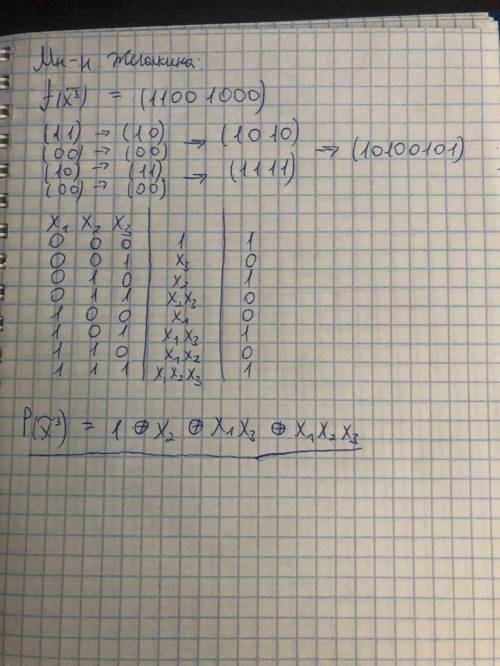 Мн-н Жегалкина:
f(x̃³) = (1100 1000)
(11) → (10) → (1010) → (10100101)
(00) → (00)
(10) → (11) → (1111)
(00) → (00)
X₁ X₂ X₃
0 0 0 1 1
0 0 1 X₃ 0
0 1 0 X₂ 1
0 1 1 X₂X₃ 0
1 0 0 X₁ 0
1 0 1 X₁X₃ 1
1 1 0 X₁X₂ 0
1 1 1 X₁X₂X₃ 1
P(x̃³) = 1 ⊕ X₂ ⊕ X₁X₃ ⊕ X₁X₂X₃